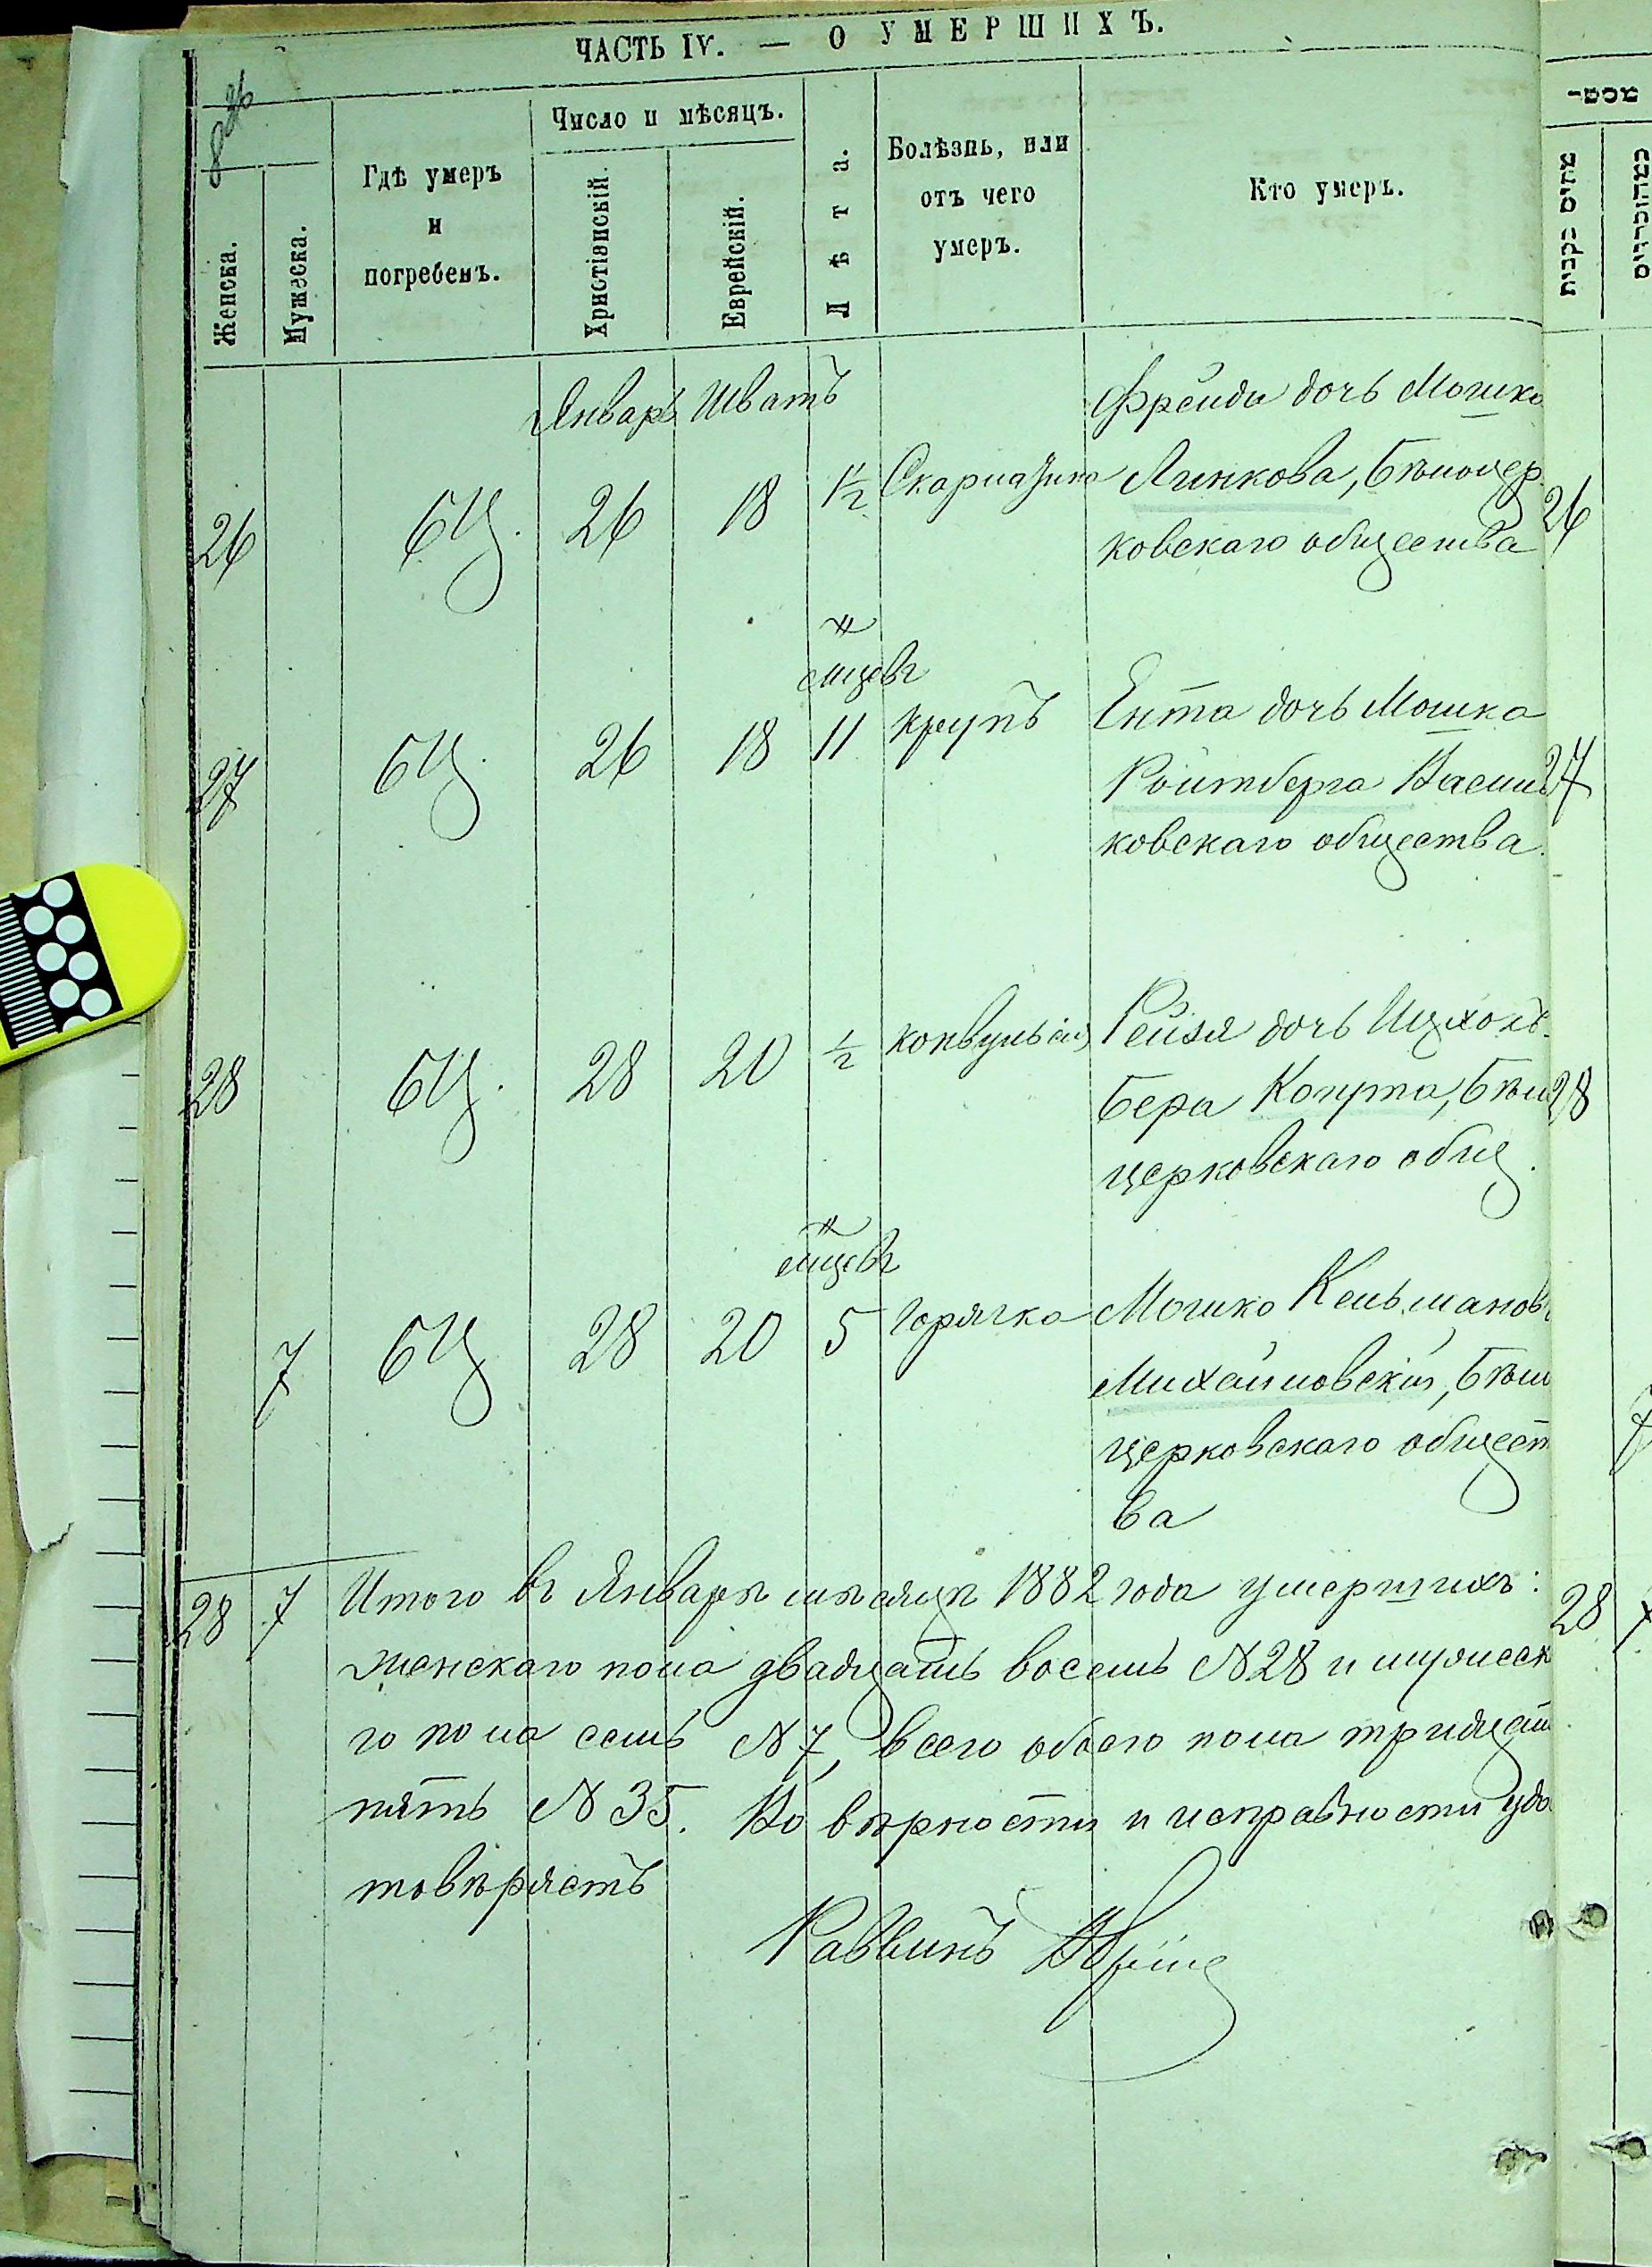 ЧАСТЬ IV. — О УМЕРШИХЪ.
Женска.
Мужеска.
Гдѣ умеръ
и
погребенъ.
Число и мѣсяцъ.
Христіанскій.
Еврейскій.
Лѣта.
Болѣзнь, или
отъ чего
умеръ.
Кто умеръ.
מספ־
מהנקבות
מהזכרים
Январь Шватъ
Фрейда дочь Мошка
26 БЦ. 26 18 1½ Скарлатина Линкова, Бѣлоцер
ковскаго общества
26
мцевъ
27 БЦ. 26 18 11 крупъ Ента дочь Мошка
Ройтберга Васил
27
ковскаго общества.
28 БЦ. 28 20 ½ конвульсія Рейзя дочь Ицхокъ
Бера Копута, Бѣл
28
церковскаго общ.
мцевъ
7 БЦ 28 20 5 горячка Мошко Кельманов
Михайловскій, Бѣло
церковскаго общест
7
ва
28 7 Итого въ Январѣ мѣсяцѣ 1882 года умершихъ:
28 7
женскаго пола двадцать восемь N 28 и мужеск
го пола семь N 7, всего обоего пола тридцат
пять N 35. Во вѣрности и исправности удо
товѣряетъ
Раввинъ